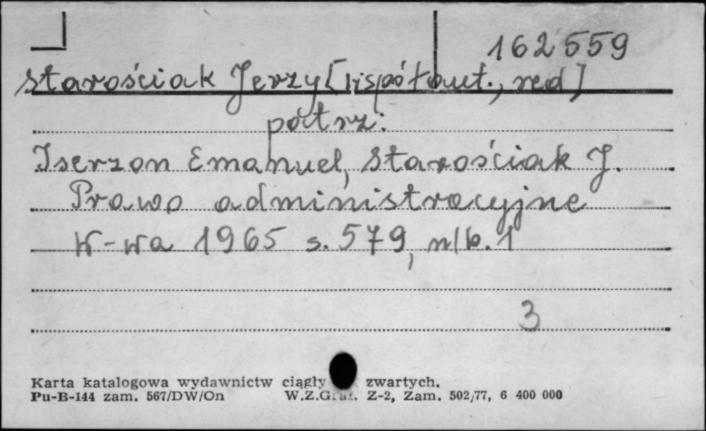 162559
Starościak Jerzy [Współaut., red]
patrz:
Iserzon Emanuel, Starościak J.
Prawo administracyjne
W-wa 1965 s. 579, nlb. 1
3
Karta katalogowa wydawnictw ciągły zwartych.
Pu-B-144 zam. 567/DW/On W.Z.Graf. Z-2, Zam. 502/77, 6 400 000